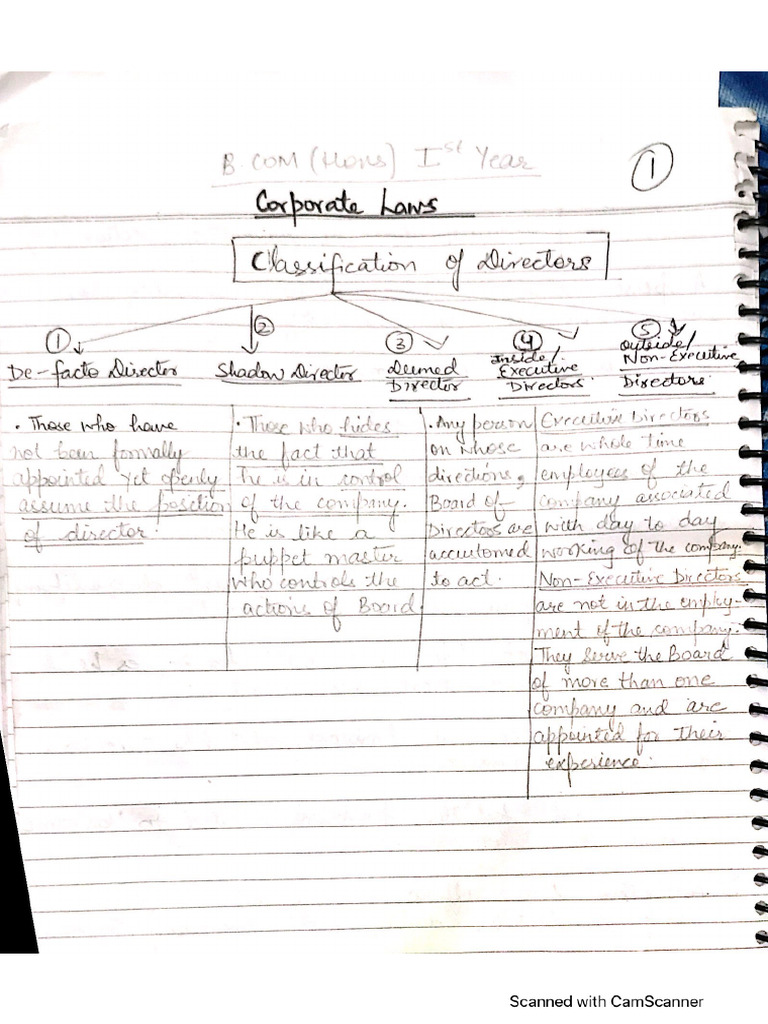 B.COM (Hons) Ist Year
1
Corporate Laws
Classification of Directors
1
De-facto Director
• Those who have
not been formally
appointed yet openly
assume the position
of director.
2
Shadow Director
• Those who hides
the fact that
he is in control
of the company.
He is like a
puppet master
who controls the
actions of Board
3
Deemed
Director
• Any person
on whose
directions,
Board of
Directors are
accustomed
to act.
4
Inside/
Executive
Directors.
5
Outside/
Non-Executive
Directors.
Executive Directors
are whole time
employees of the
company associated
with day to day
working of the company.
Non-Executive Directors
are not in the employ-
ment of the company.
They serve the Board
of more than one
company and are
appointed for their
experience.
Scanned with CamScanner